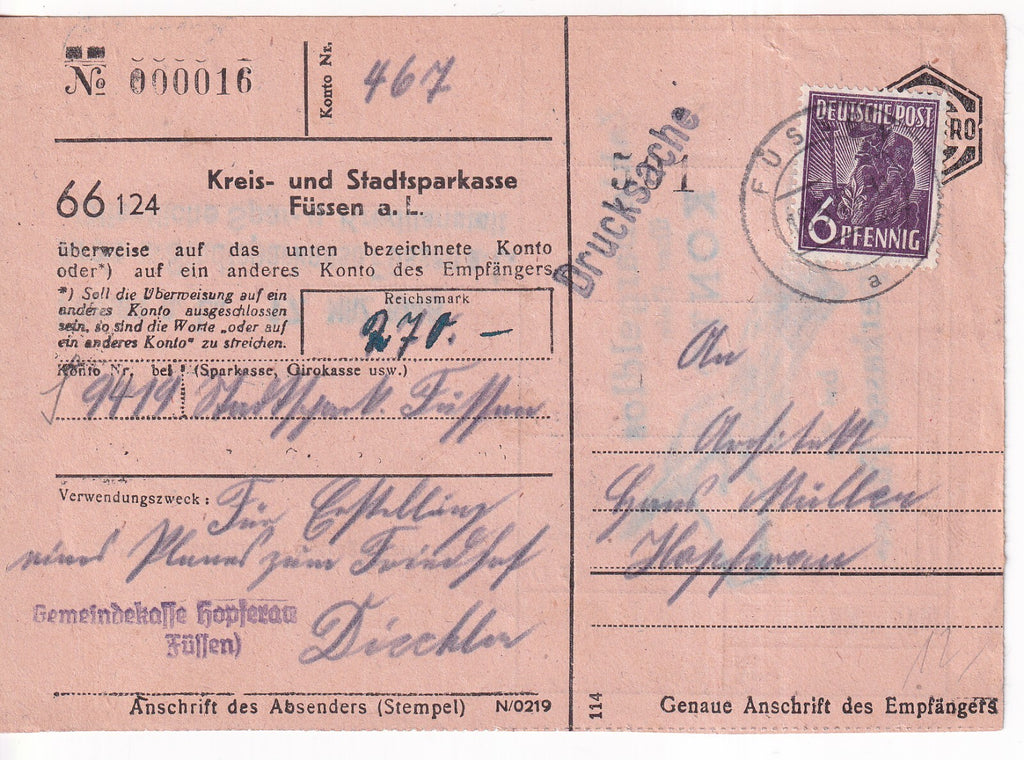 № 000016
Konto Nr.
467
66 124
Kreis- und Stadtsparkasse
Füssen a. L.
überweise auf das unten bezeichnete Konto
oder*) auf ein anderes Konto des Empfängers
*) Soll die Überweisung auf ein
anderes Konto ausgeschlossen
sein, so sind die Worte „oder auf
ein anderes Konto" zu streichen.
Reichsmark
270.–
Konto Nr. bei (Sparkasse, Girokasse usw.)
9419 Stadtspark. Füssen
Verwendungszweck:
Für Erstellung
eines Planes zum Friedhof
Gemeindekasse Hopferau
Füssen)
Anschrift des Absenders (Stempel) N/0219
Drucksache
1
DEUTSCHE POST
6 PFENNIG
RO
FÜS
a
An
Architekt
Hans Müller
Hopferau
12
114
Genaue Anschrift des Empfängers